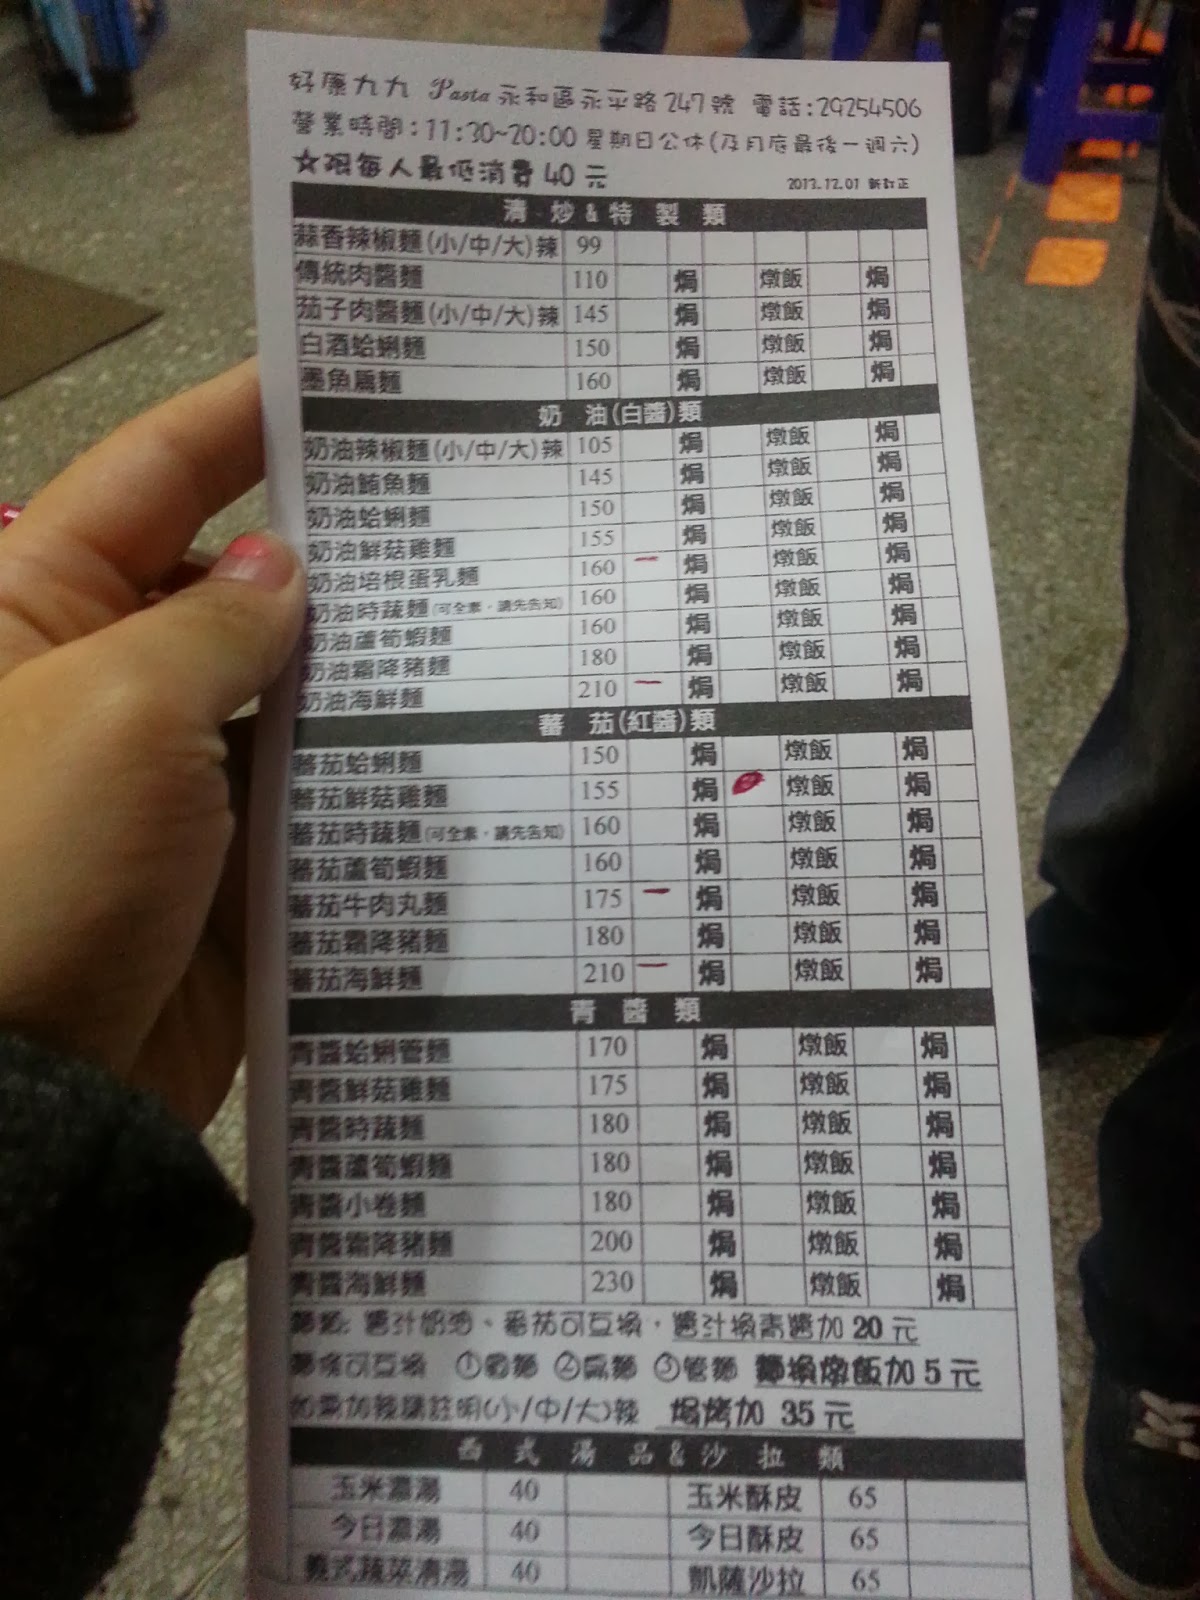 好康九九 Pasta 永和區永平路247號 電話:29254506
營業時間:11:30~20:00 星期日公休(及月底最後一週六)
☆限每人最低消費40元 2013.12.01 新訂正
清 炒 & 特 製 類
蒜香辣椒麵(小/中/大)辣 99
傳統肉醬麵 110 焗 燉飯 焗
茄子肉醬麵(小/中/大)辣 145 焗 燉飯 焗
白酒蛤蜊麵 150 焗 燉飯 焗
墨魚扁麵 160 焗 燉飯 焗
奶 油(白醬)類
奶油辣椒麵(小/中/大)辣 105 焗 燉飯 焗
奶油鮪魚麵 145 焗 燉飯 焗
奶油蛤蜊麵 150 焗 燉飯 焗
奶油鮮菇雞麵 155 焗 燉飯 焗
奶油培根蛋乳麵 160 一 焗 燉飯 焗
奶油時蔬麵(可全素,請先告知) 160 焗 燉飯 焗
奶油蘆筍蝦麵 160 焗 燉飯 焗
奶油霜降豬麵 180 焗 燉飯 焗
奶油海鮮麵 210 一 焗 燉飯 焗
蕃 茄(紅醬)類
蕃茄蛤蜊麵 150 焗 燉飯 焗
蕃茄鮮菇雞麵 155 焗 燉飯 焗
蕃茄時蔬麵(可全素,請先告知) 160 焗 燉飯 焗
蕃茄蘆筍蝦麵 160 焗 燉飯 焗
蕃茄牛肉丸麵 175 一 焗 燉飯 焗
蕃茄霜降豬麵 180 焗 燉飯 焗
蕃茄海鮮麵 210 一 焗 燉飯 焗
青 醬 類
青醬蛤蜊管麵 170 焗 燉飯 焗
青醬鮮菇雞麵 175 焗 燉飯 焗
青醬時蔬麵 180 焗 燉飯 焗
青醬蘆筍蝦麵 180 焗 燉飯 焗
青醬小卷麵 180 焗 燉飯 焗
青醬霜降豬麵 200 焗 燉飯 焗
青醬海鮮麵 230 焗 燉飯 焗
麵類: 醬汁奶油、蕃茄可互換,醬汁換青醬加 20 元
麵條可互換 ①圓麵 ②扁麵 ③管麵 麵換燉飯加 5 元
如需加辣請註明(小/中/大)辣 焗烤加 35 元
西 式 湯 品 & 沙 拉 類
玉米濃湯 40 玉米酥皮 65
今日濃湯 40 今日酥皮 65
義式蔬菜清湯 40 凱薩沙拉 65